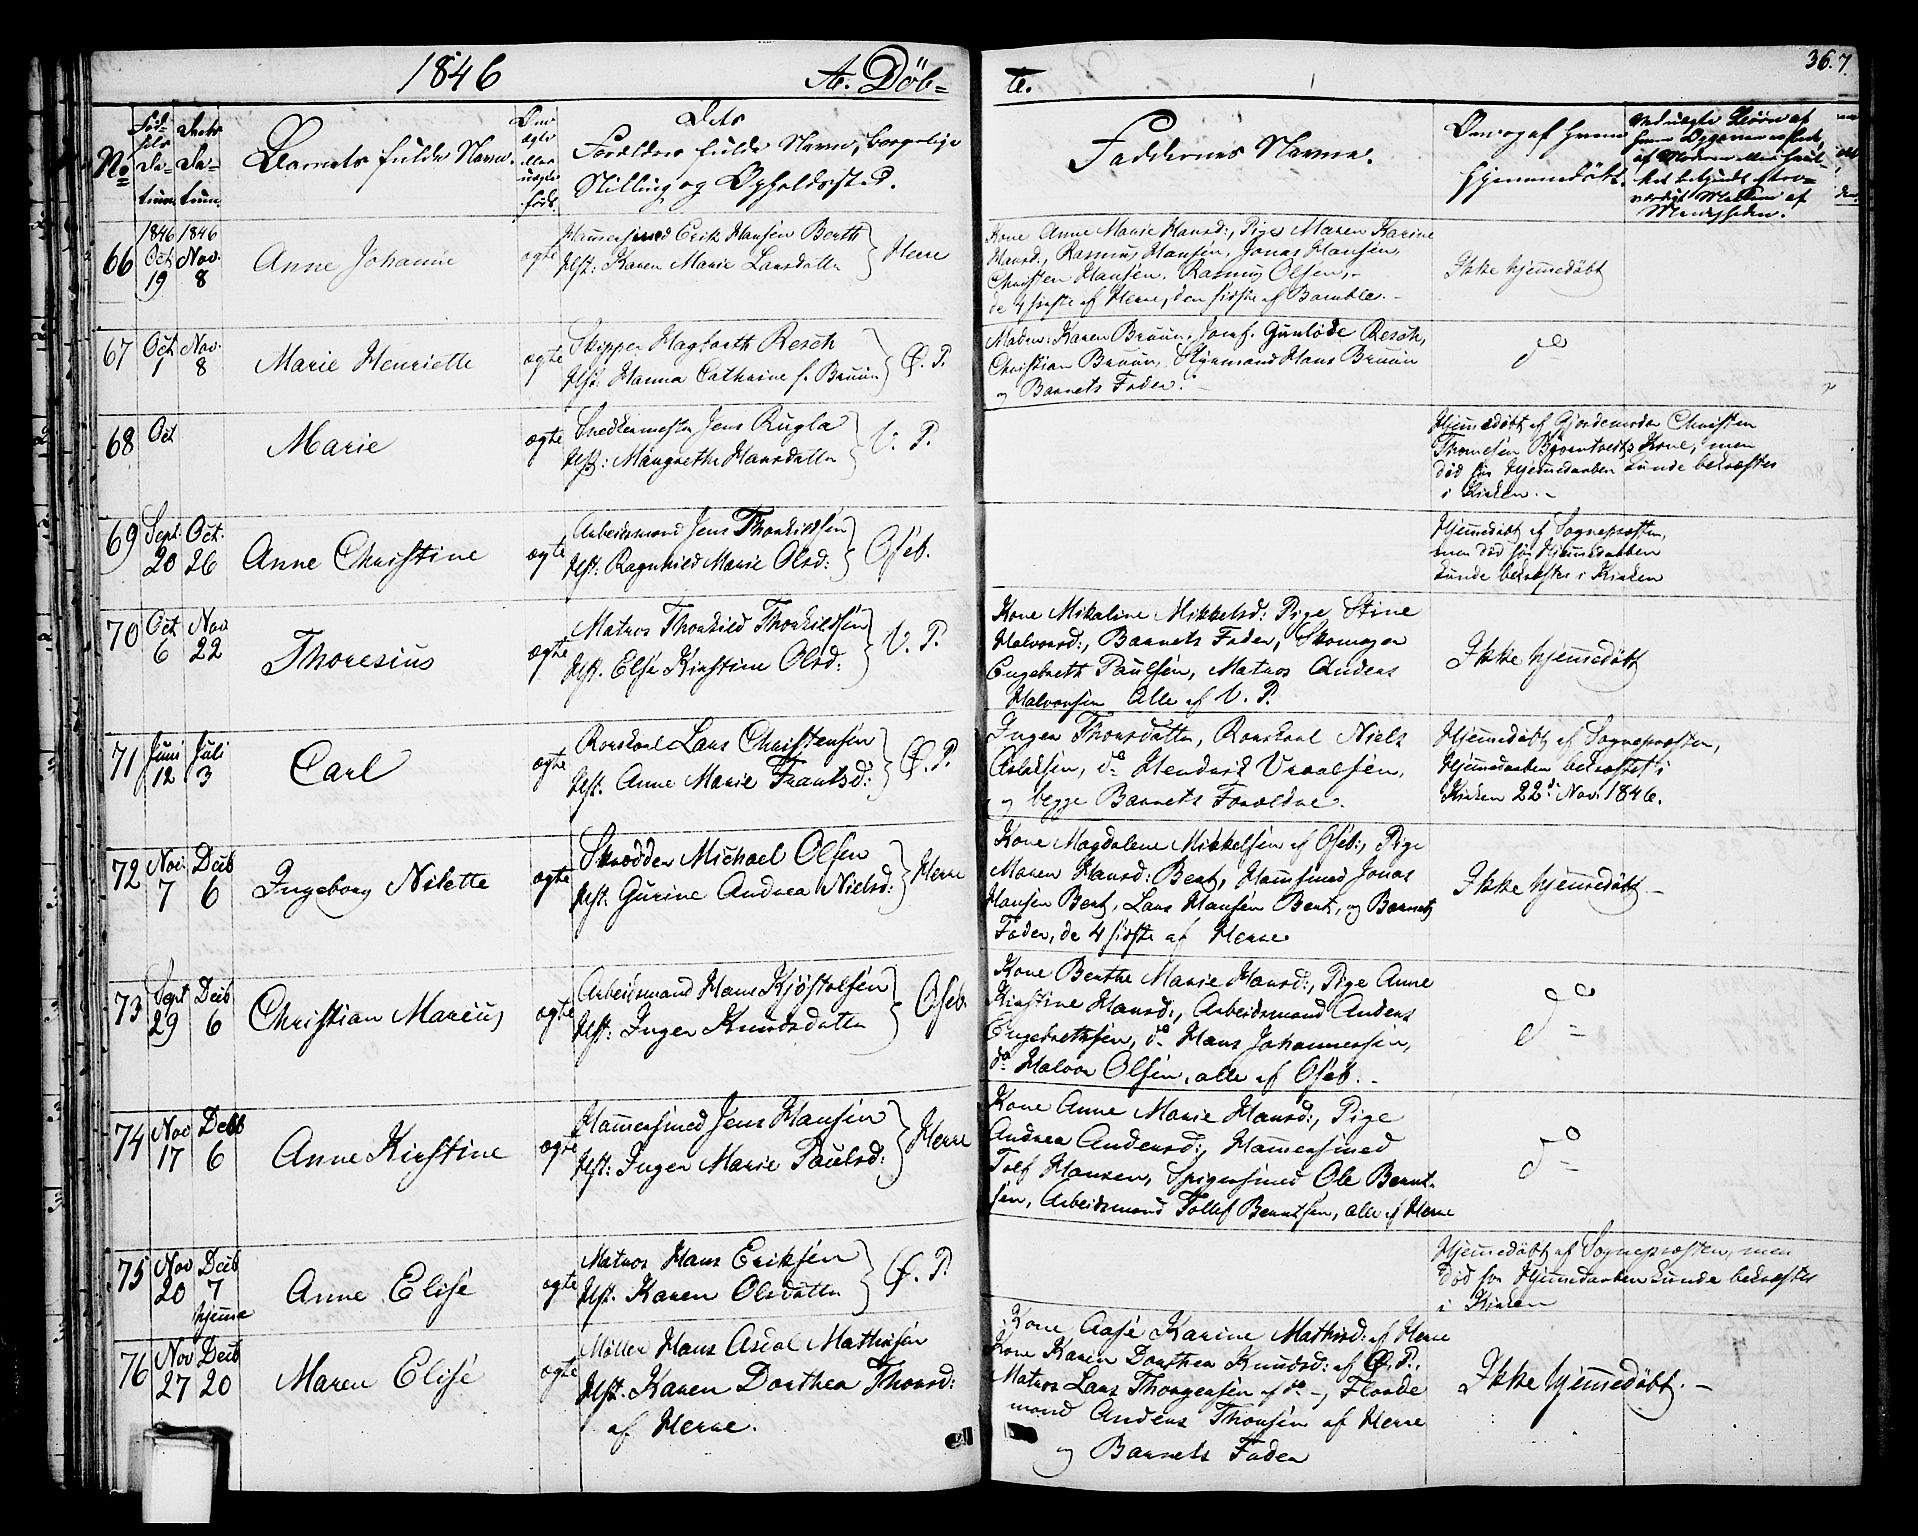 1846 A. Døb=
te.
36.7.
No
Fød-
sels
Da-
tum
Daabs
Da-
tum
Barnets fulde Navn.
Om
egte
eller
uegte
født.
Dets
Forældres fulde Navn, borgerlige
Stilling og Opholdssted.
Faddernes Navne.
Om og af hvem
hjemmedøbt.
66 1846 Oct 19 1846 Nov. 8 Anne Johanne ægte
Hammersmed Erik Hansen Benth
Hst: Karen Marie Larsdatter } Herre
Kone Anne Marie Hansd:, Pige Maren Karine
Hansd., Rasmus Hansen, Jonas Hansen,
Christen Hansen, Rasmus Olsen, -
de 4 første af Herre, den sidste af Bamble. -
Ikke hjemmedøbt
67 Oct 1 Nov. 8 Marie Henriette ægte
Skipper Hagbarth Resch
Hst. Hanna Cathrine f. Bruun } Ø. P.
Madm: Karen Bruun, Jomf. Gunløde Resch,
Christian Bruun, Styrmand Hans Bruun
og Barnets Fader. -
do
68 Oct Marie ægte
Snedkermester Jens Rugla
Hst: Margrethe Hansdatter } V. P.
Hjemmedøbt af Gjordemoder Christen
Thomesen Kone, men
død før Hjemmedaaben kunde bekræftes
i Kirken. -
69 Sept. 20 Oct. 26 Anne Christine ægte
Arbeidsmand Jens Thorkildsen
Hst: Ragnhild Marie Olsd: } Oseb.
Hjemmedøbt af Sognepræsten,
men død før Hjemmedaaben
kunde bekræftes i Kirken
70 Oct 6 Nov 22 Thoresius ægte
Matros Thorkild Thorkildsen
Hst. Else Kirstine Olsd: } V. P.
Kone Mikaline Mikkelsd: Pige Stine
Halvorsd:, Barnets Fader, Skomager
Engebreth Paulsen, Matros Anders
Halvorsen Alle af V. P.
Ikke hjemmedøbt
71 Juni 12 Juli 3 Carl ægte
Rorskarl Lars Christensen
Hst. Anne Marie Frantsd: } Ø. P.
Inger Thorsdatter, Rorskarl Niels
Aslaksen, do Hendrik Vraalsen,
og begge Barnets Forældre.
Hjemmedøbt af Sognepræsten,
Hjemmedaaben bekræftet i
Kirken 22d Nov. 1846.
72 Nov. 7 Decb 6 Ingeborg Nilette ægte
Skrædder Michael Olsen
Hst. Gurine Andrea Nielsd: } Herre
Kone Magdalene Mikkelsen af Oseb:, Pige
Maren Hansd: Bent, Hammersmed Jonas
Hansen Bent, Lars Hansen Bent, og Barnets
Fader, de 4 sidste af Herre
Ikke hjemmedøbt -
73 Sept 29 Decb 6 Christian Marius ægte
Arbeidsmand Hans Kjøstolsen
Hst: Inger Knudsdatter } Oseb.
Kone Berthe Marie Hansd:, Pige Anne
Kirstine Hansd:, Arbeidsmand Anders
Engebrethsen, do Hans Johannessen,
do Halvor Olsen, alle af Oseb. -
do
74 Nov 17 Decb 6 Anne Kirstine ægte
Hammersmed Jens Hansen
Hst: Inger Marie Paulsd: } Herre
Kone Anne Marie Hansd:, Pige
Andrea Andersd:, Hammersmed
Tolf Hansen, Spigersmed Ole Bernt-
sen, Arbeidsmand Tollef Berntsen, alle af Herre
do
75 Nov 20 Decb 7 hjemme Anne Elise ægte
Matros Hans Eriksen
Hst. Karen Olsdatter } Ø. P.
Hjemmedøbt af Sognepræsten, men
død før Hjemmedaaben kunde bekræftes
i Kirken
76 Nov 27 Decb 20 Maren Elise ægte
Møller Hans Asdal Mathisen
Hst. Karen Dorthea Thorsd:
af Herre.
Kone Aase Karine Mathisd: af Herre
Kone Karen Dorthea Knudsd: af Ø. P.,
Matros Lars Thorgersen af do -, Fløde
mand Anders Thorsen af Herre
og Barnets Fader
Ikke hjemmedøbt. -